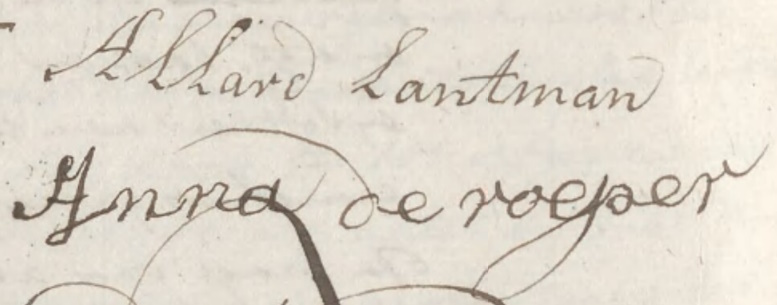 Allard Lantman
Anna de roeper